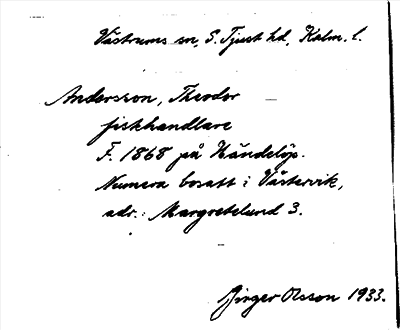 Västrums sn, S. Tjust hd, Kalm. l.
Andersson, Theodor
fiskhandlare
F. 1868 på Händelöp.
Numera bosatt i Västervik,
adr.: Margretelund 3.
Birger Olsson 1933.